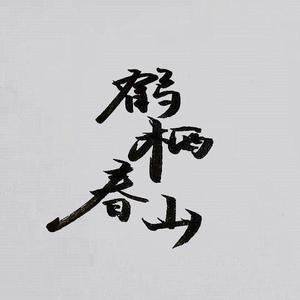 鹤栖
春山